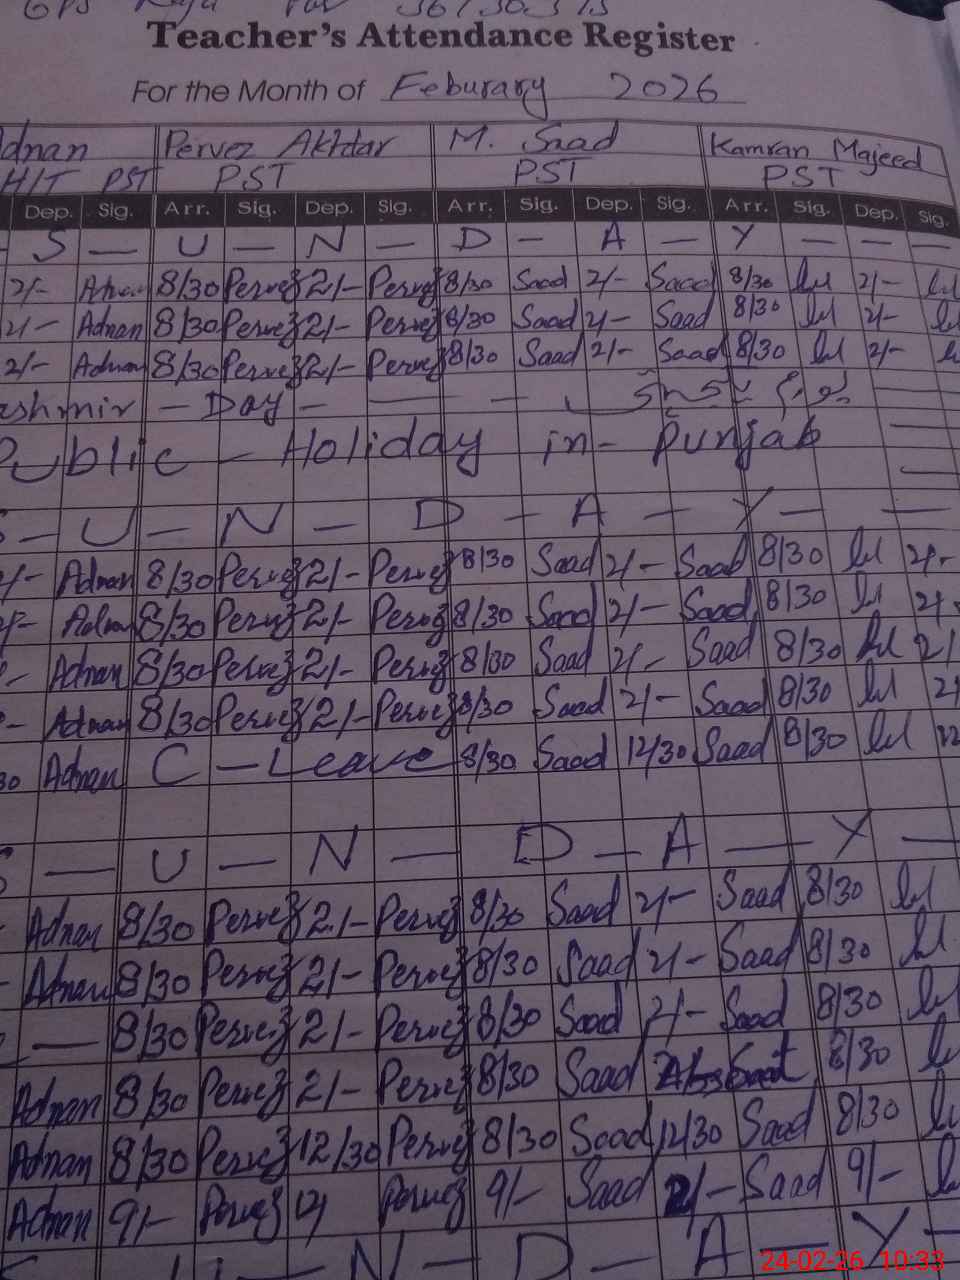 GPS
Teacher's Attendance Register
For the Month of Feburary 2026
Adnan Pervez Akhtar M. Saad Kamran Majeed
H/T PST PST PST PST
Dep. Sig. Arr. Sig. Dep. Sig. Arr. Sig. Dep. Sig. Arr. Sig. Dep. Sig.
S — U — N — D — A — Y — — —
2/- Adnan 8/30 Pervez 2/- Pervez 8/30 Saad 2/- Saad 8/30 2/-
2/- Adnan 8/30 Pervez 2/- Pervez 8/30 Saad 2/- Saad 8/30 2/-
2/- Adnan 8/30 Pervez 2/- Pervez 8/30 Saad 2/- Saad 8/30 2/-
ashmir — Day — — —
Public — Holiday in — Punjab
S — U — N — D — A — Y — —
2/- Adnan 8/30 Pervez 2/- Pervez 8/30 Saad 2/- Saad 8/30 2/-
2/- Adnan 8/30 Pervez 2/- Pervez 8/30 Saad 2/- Saad 8/30 2/-
- Adnan 8/30 Pervez 2/- Pervez 8/30 Saad 2/- Saad 8/30 2/
- Adnan 8/30 Pervez 2/- Pervez 8/30 Saad 2/- Saad 8/30 2/
30 Adnan C — Leave 8/30 Saad 12/30 Saad 8/30 12
S — U — N — D — A — Y —
Adnan 8/30 Pervez 2/- Pervez 8/30 Saad 2/- Saad 8/30
Adnan 8/30 Pervez 2/- Pervez 8/30 Saad 2/- Saad 8/30
— 8/30 Pervez 2/- Pervez 8/30 Saad 2/- Saad 8/30
Adnan 8/30 Pervez 2/- Pervez 8/30 Saad 8/30
Adnan 8/30 Pervez 12/30 Pervez 8/30 Saad 12/30 Saad 8/30
Adnan 9/- Pervez Pervez 9/- Saad 2/- Saad 9/-
S U — N — D — A — Y —
24-02-26 10:33